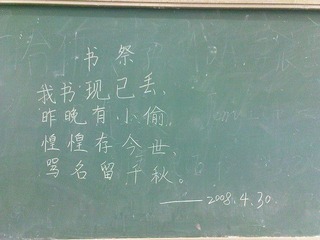 书祭
我书现已丢、
昨晚有小偷。
惶惶存今世、
骂名留千秋。
——2008.4.30